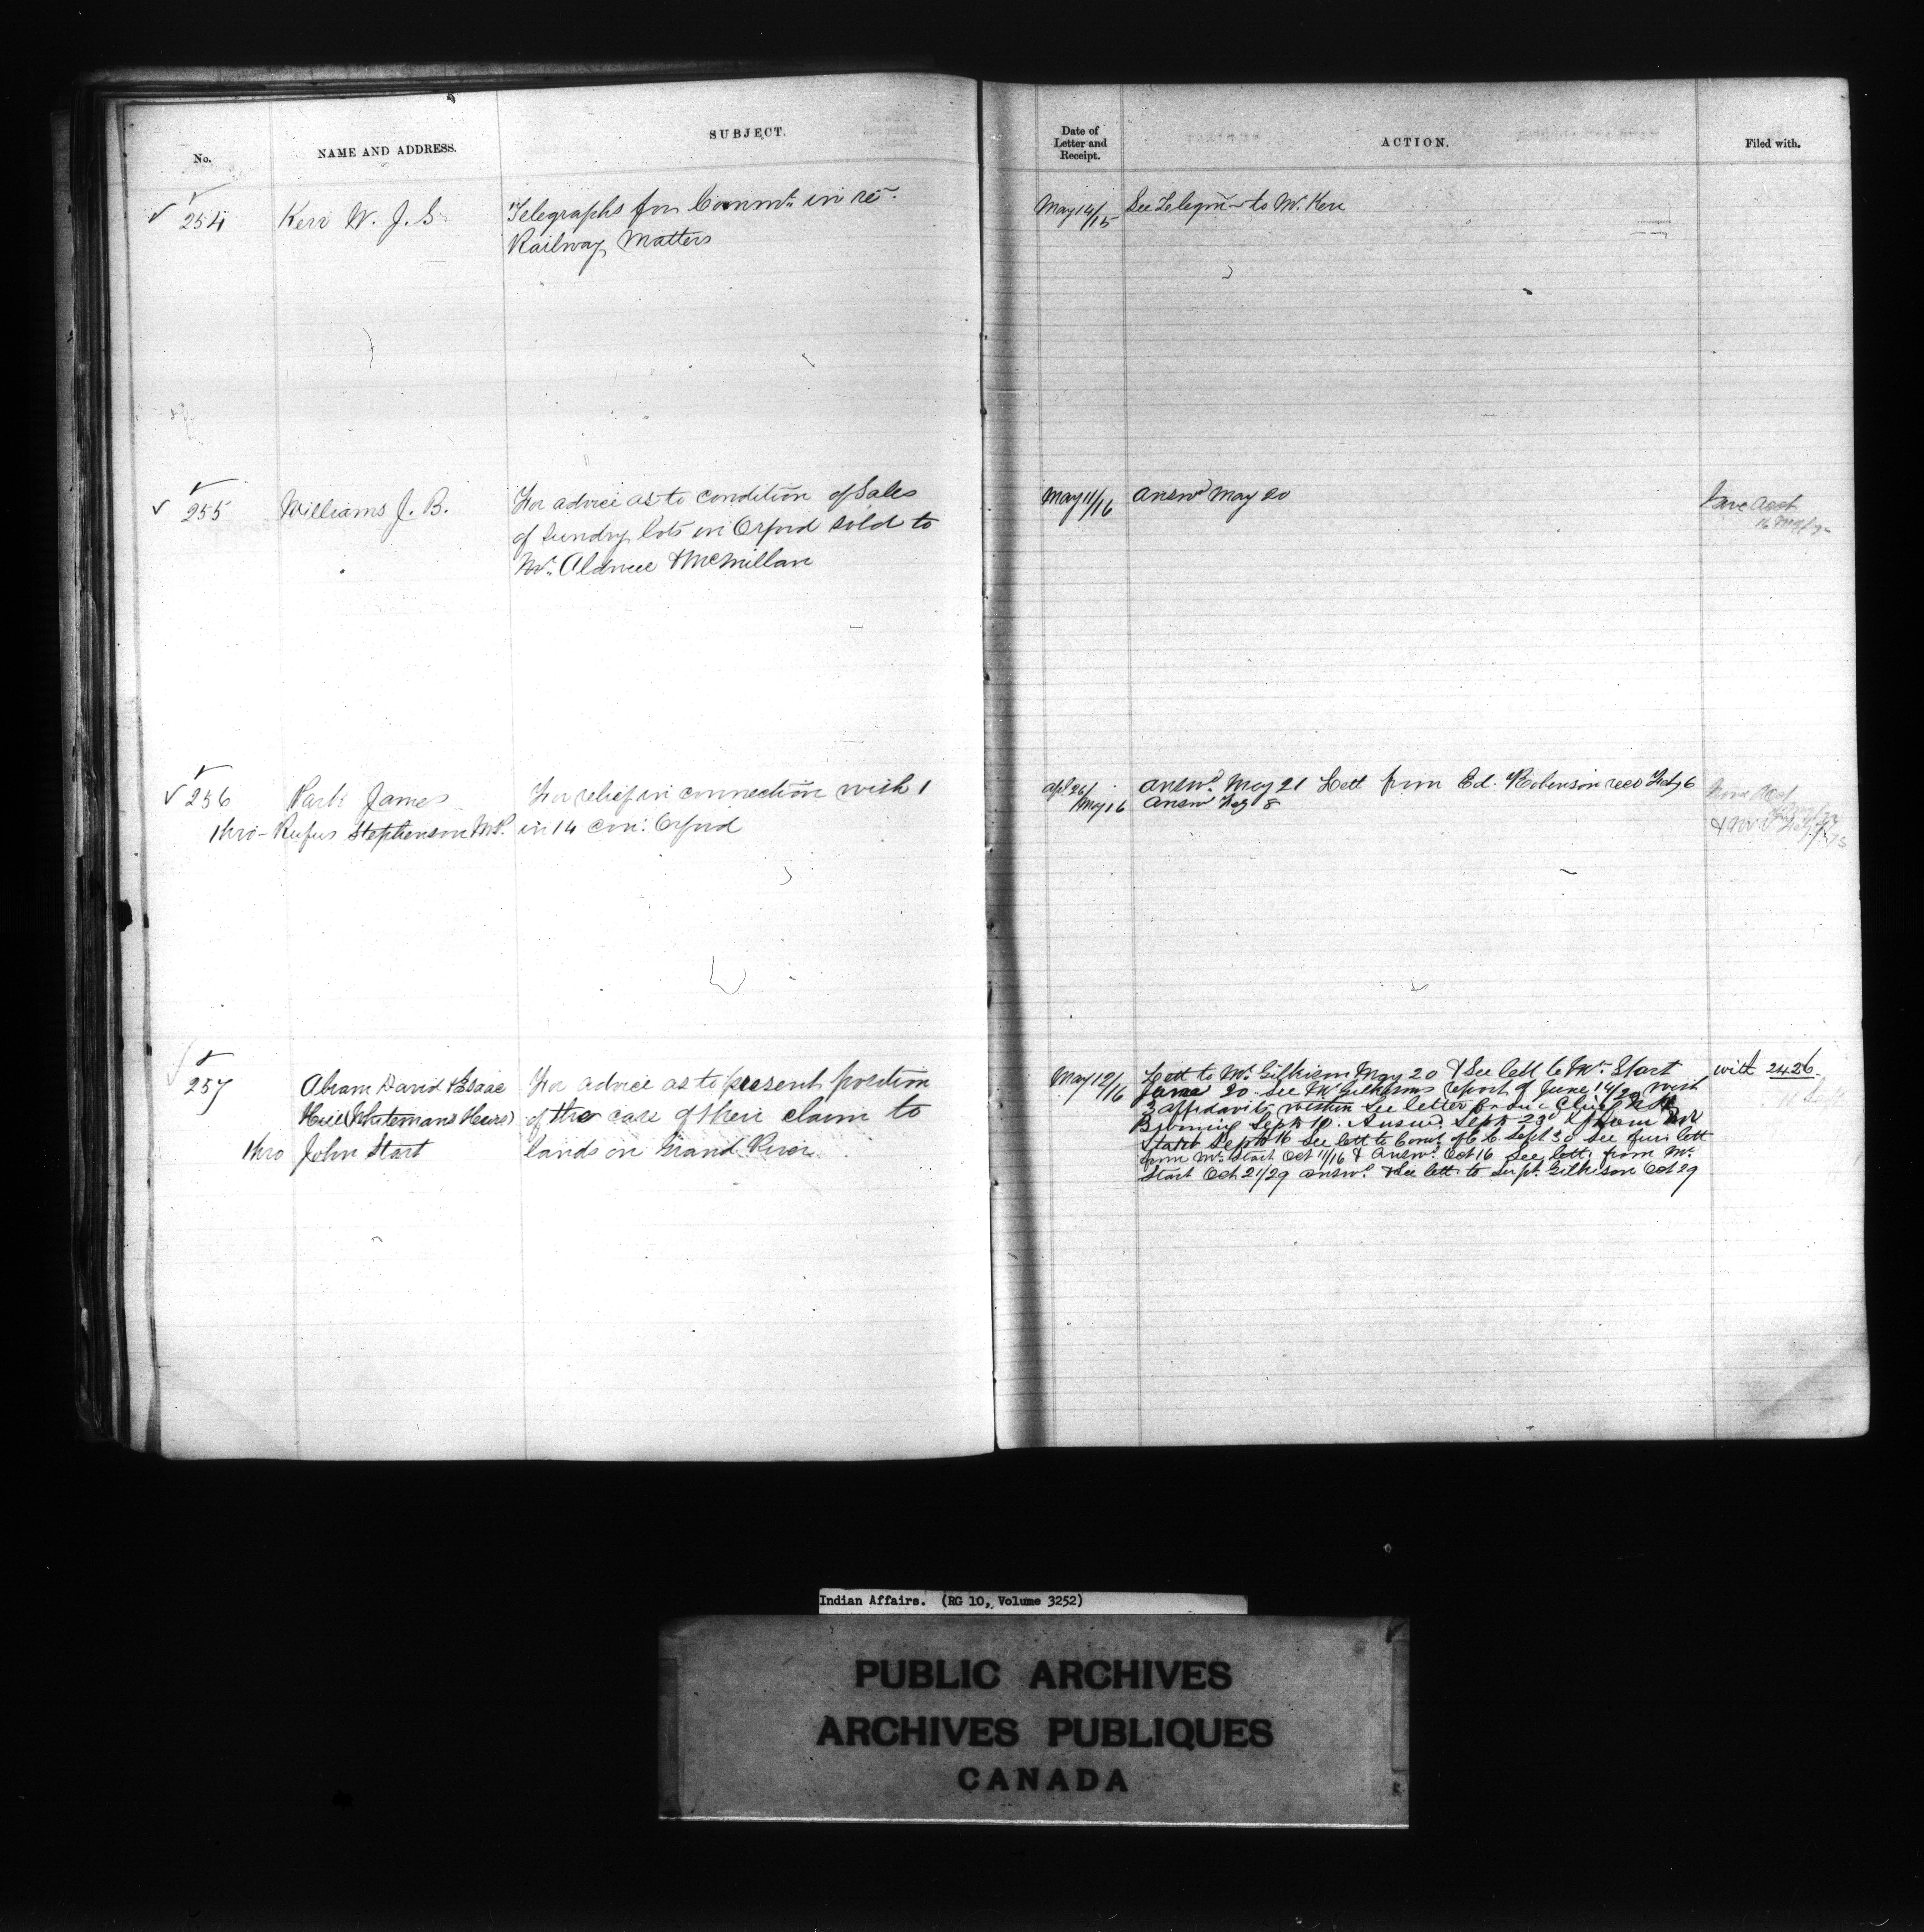 No.
NAME AND ADDRESS.
SUBJECT.
Date of
Letter and
Receipt.
ACTION.
Filed with.
254
Kerr W. J. S.
Telegraphs for Commn. in re.
Railway Matters
May 14/15
See Telegm to Mr. Kerr
255
Williams J. B.
For advice as to condition of Sales
of sundry lots in Orford sold to
McMillan
May 11/16
Answd May 20
256
Park James
thro- Rufus Stephenson M.P.
For relief in connection with 1
in 14 con: Orford
Apl 26/
May 16
Answd. May 21 Lett from Ed. Robinson recd Feby 6
Answd Feby 8
257
Abram David & Isaac
Hill Heirs)
thro John Start
For advice as to present position
of the case of their claim to
lands on Grand River
May 12/16
Lett to Mr. Gilkison May 20 & See lett to Mr. Start
June 20. See Mr Gilkisons report of June 14/20 with
3 affidavits within See letter from Chief
Browning Sept 10. Answd. Sept 23 & from Mr
Start Sept 16 See lett to of Sept 30 See furr lett
from Mr. Start Oct 11/16 & Answd. Oct 16 See lett. from Mr.
Start Oct 21/29 answd. & See lett. to Supt. Gilkison Oct 29
with 2426.
Indian Affairs. (RG 10, Volume 3252)
PUBLIC ARCHIVES
ARCHIVES PUBLIQUES
CANADA